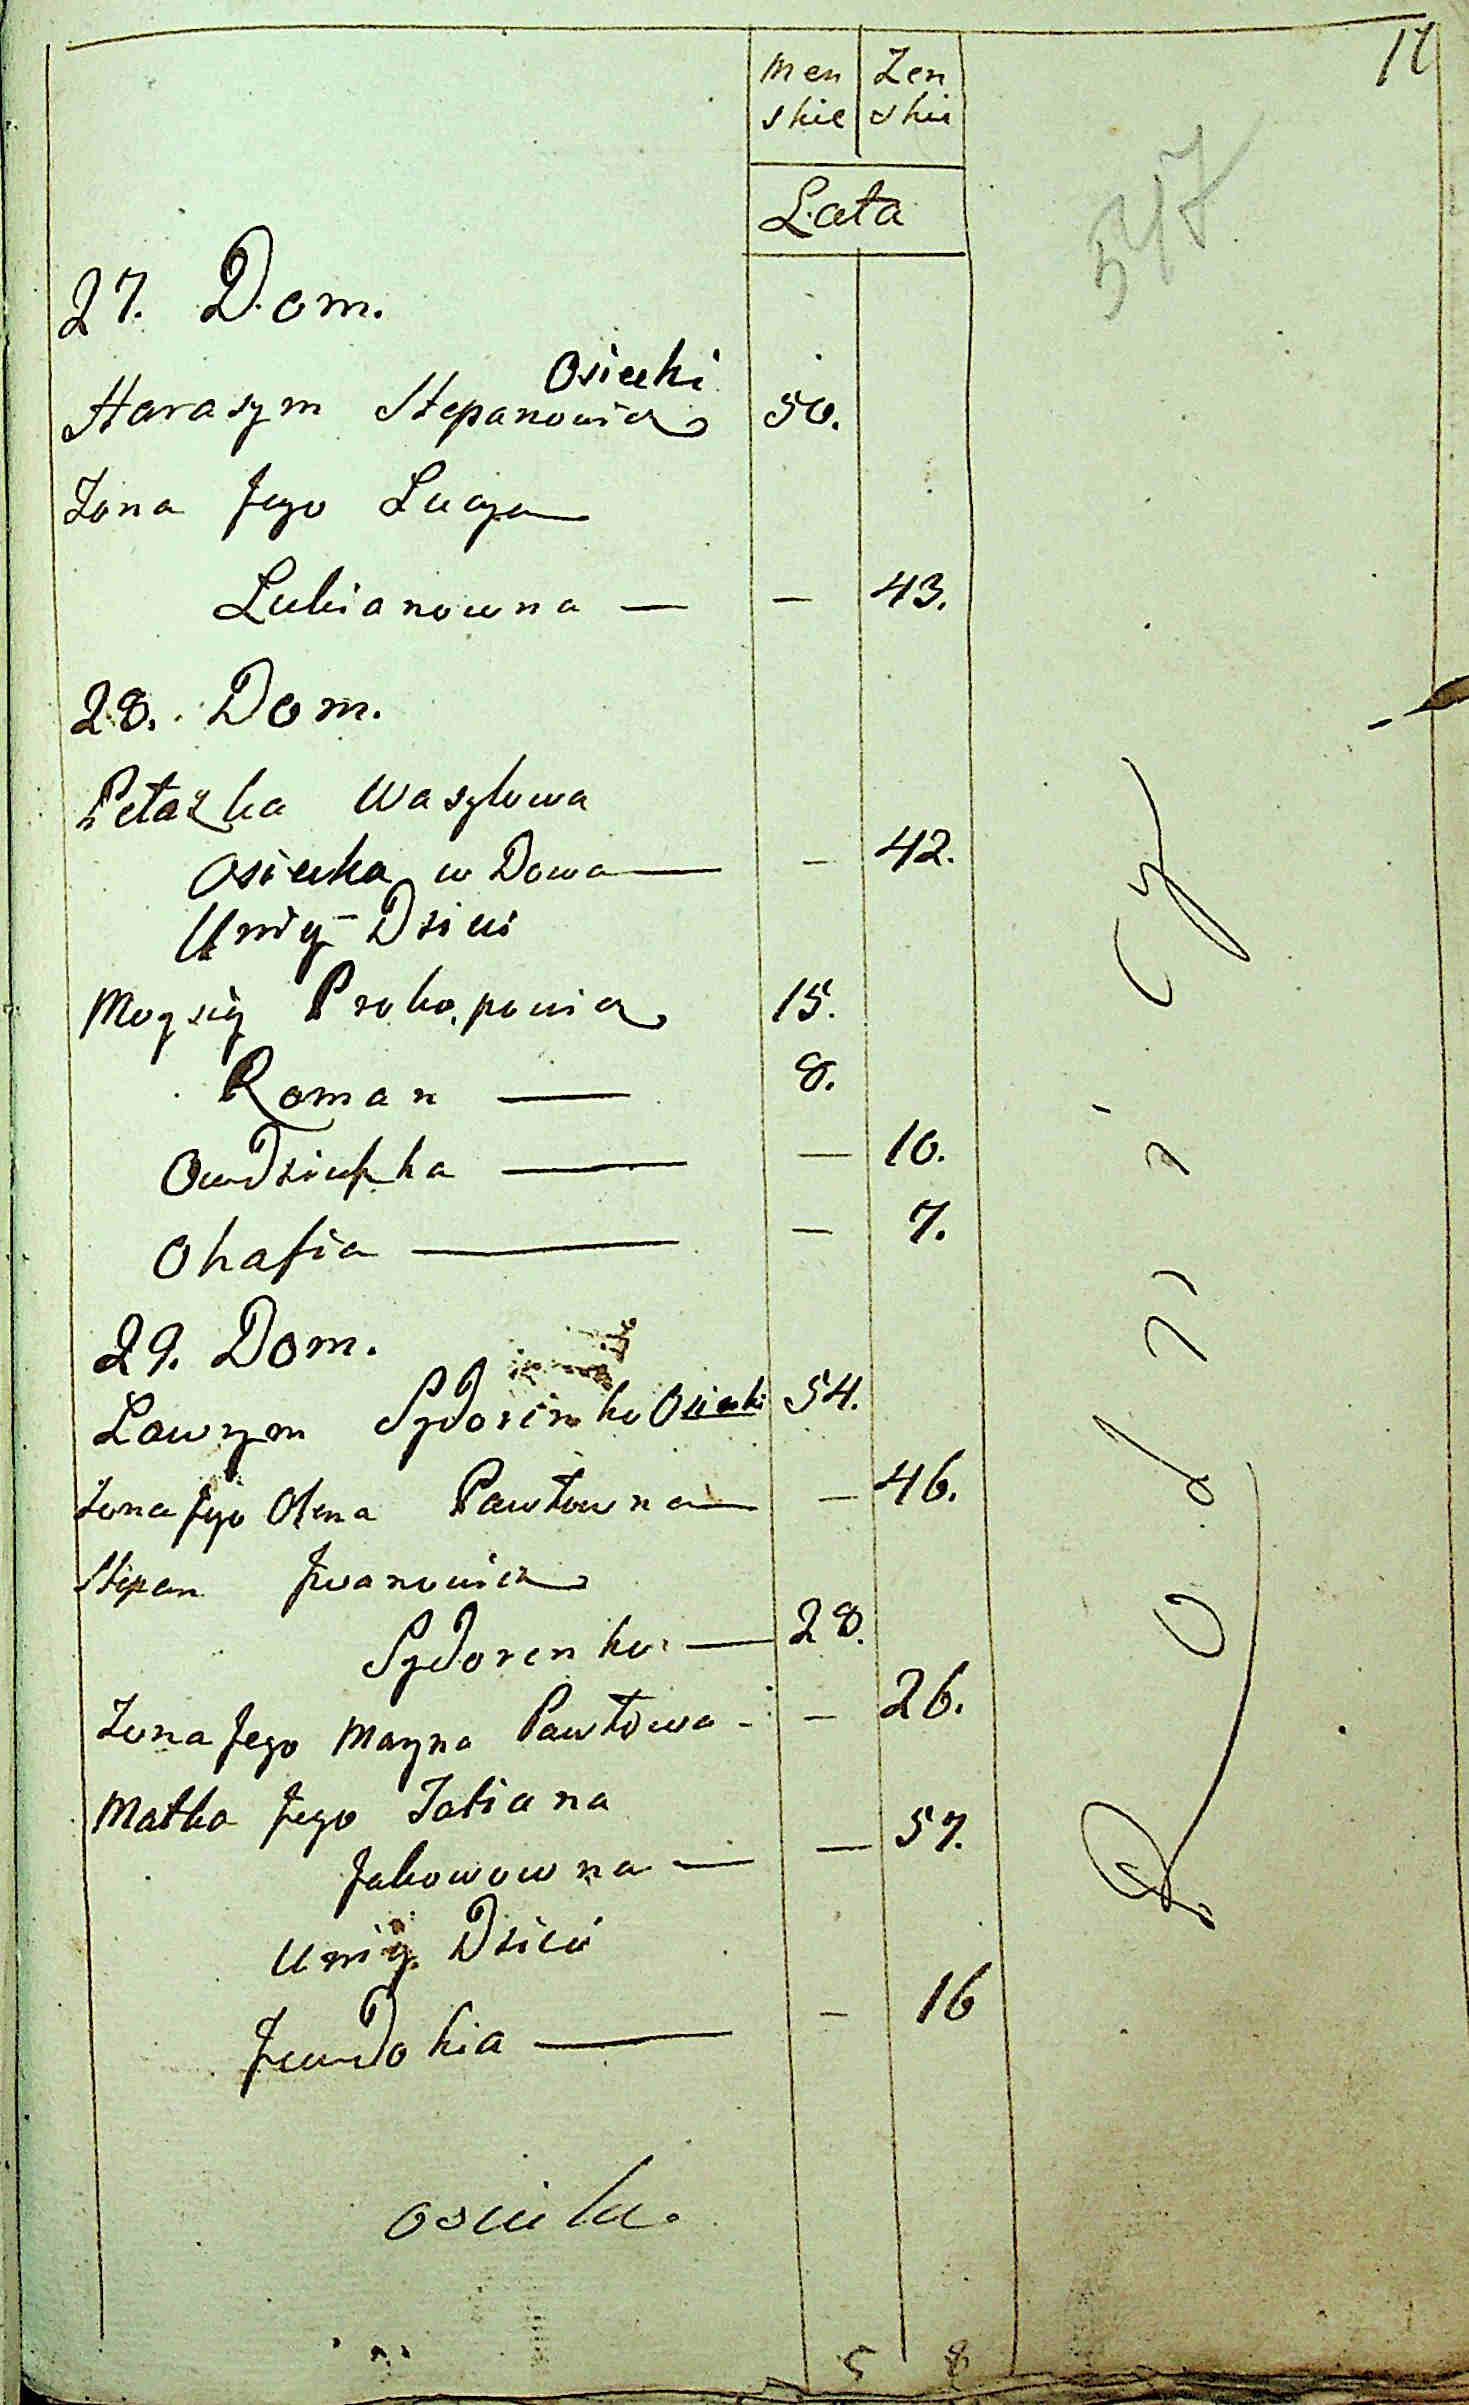 Men Zen
skie skie
Lata
547
27. Dom.
Osiecki
Harasym Stepanowicz 50.
Zona Jego Lucya
Lukianowna — — 43.
28. Dom.
Petazka Wasylowa
Osiecka w Dowa — — 42.
Umiy Dzieci
Moysiy Prokopowicz 15.
Roman — 8.
Owdziuszka — — 10.
Ohafia — — 7.
29. Dom.
Lawrym Sydorenko Osiecki 54.
Zona Jego Olena Pawłowna — — 46.
Stepan Jwanowicz
Sydorenko — 28.
Zona Jego Maryna Pawłowa - — 26.
Matka Jego Tatiana
Jakowowna — — 57.
Umiy Dzieci
Jewdokia — — 16
5 8